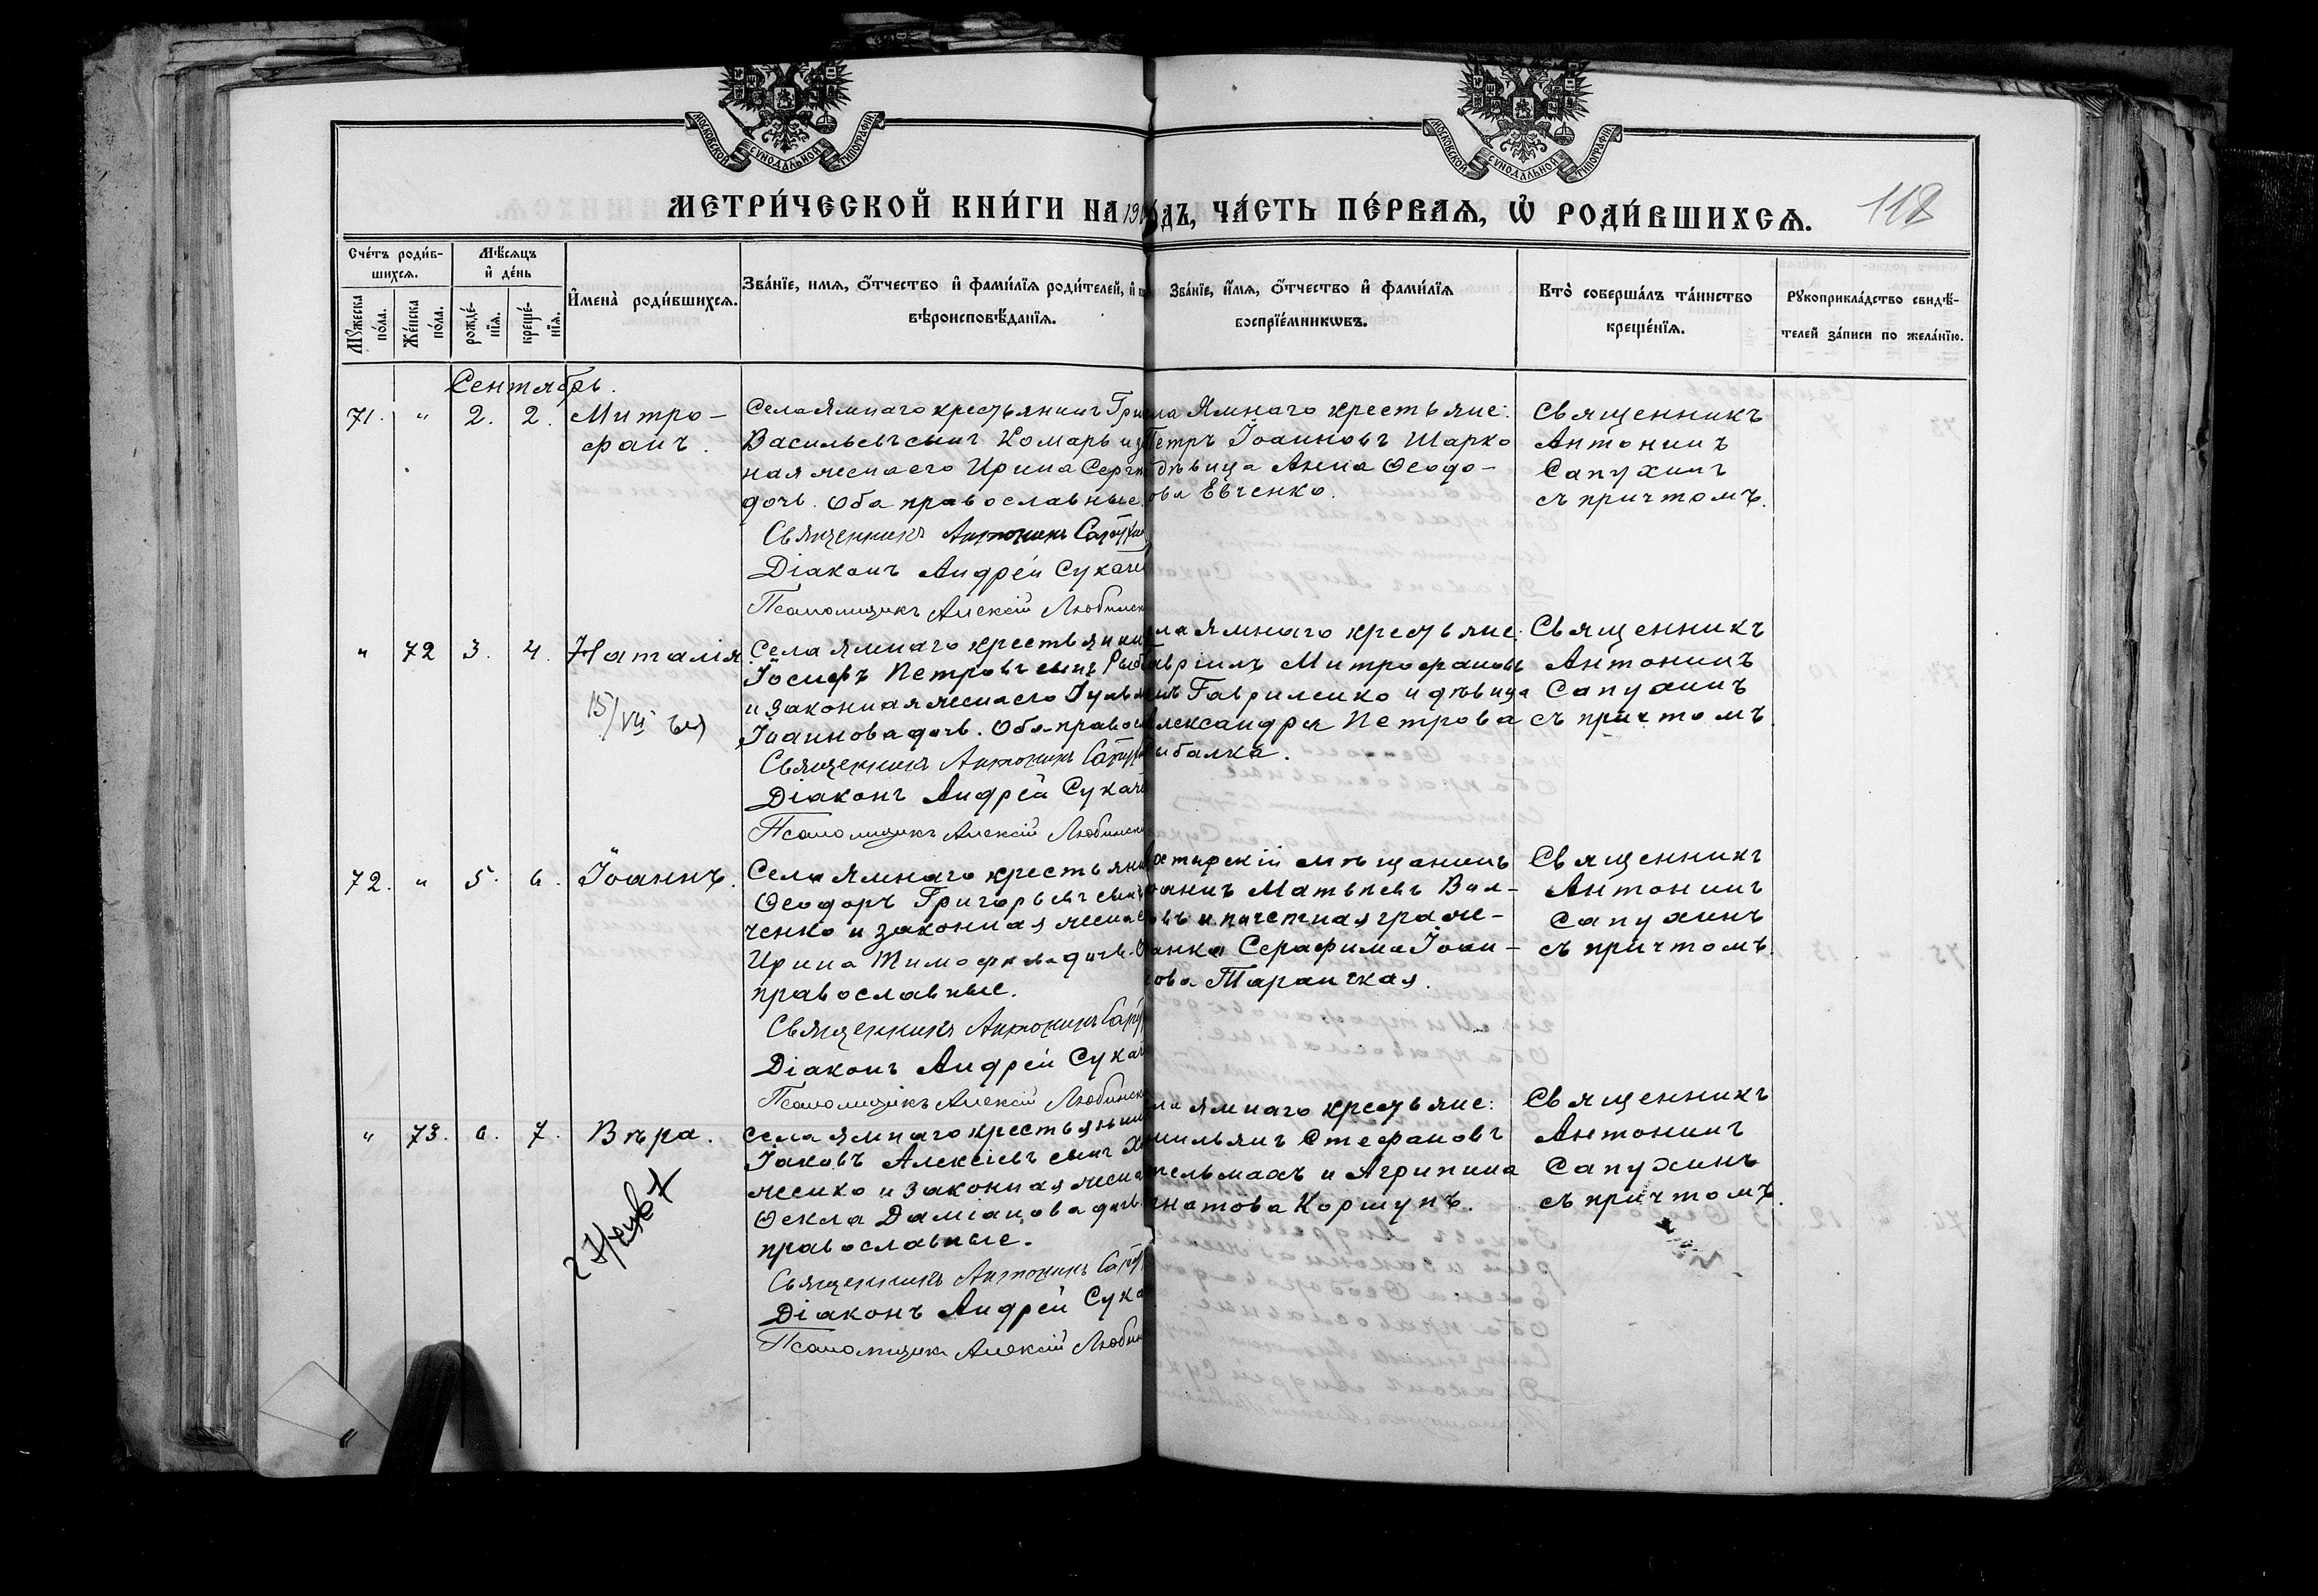 МОСКОВСКОЙ СѴНОДАЛЬНОЙ ТИПОГРАФІИ
МОСКОВСКОЙ СѴНОДАЛЬНОЙ ТИПОГРАФІИ
МЕТРИ́ЧЕСКОЙ КНИ́ГИ НА 19
ДЪ, ЧА́СТЬ ПЕ́РВАѦ, Ѡ҆ РОДИ́ВШИХСѦ.
118
Сче́тъ роди́в-
шихсѧ.
Мꙋ́жеска
по́ла.
Же́нска
по́ла.
Мѣ́сѧцъ
и҆ де́нь
рожде́-
нїѧ.
креще́-
нїѧ.
И҆мена̀ роди́вшихсѧ.
Зва́нїе, имѧ, ѻ҆́тчество и҆ фами́лїѧ роди́телей, и҆
вѣроисповѣ́данїѧ.
Зва́нїе, и҆́мѧ, ѻ҆́тчество и҆ фами́лїѧ
воспрїе́мникѡвъ.
Кто̀ соверша́лъ та́инство
креще́нїѧ.
Рꙋкоприкла́дство свидѣ́-
телей за́писи по жела́нїю.
Сентябрь.
71. " 2. 2. Митро-
фанъ.
Села Ямнаго крестьянинъ Гри
Васильевъ сынъ Комарь и за
ная жена его Ирина Серг
дочь. Оба православные.
Священникъ Антонинъ Сапухин
Діаконъ Андрей Сукаче
Псаломщикъ Алексій Любинск
ла Ямнаго крестьяне:
Петръ Іоанновъ Шарко
дѣвица Анна Ѳеодо-
ова Евченко.
Священникъ
Антонинъ
Сапухинъ
съ причтомъ.
" 72 3. 4. Наталія
15/VII
Села Ямнаго крестьянин
Іосифъ Петровъ сынъ Рыб
и законная жена его Гуль
Іоаннова дочь. Оба правос
Священникъ Антонинъ Сапух
Діаконъ Андрей Сукаче
Псаломщикъ Алексій Любинск
ла Ямнаго крестьяне:
Гавріилъ Митрофановъ
нъ Гавриленко и дѣвица
Александра Петрова
Рыбалка.
Священникъ
Антонинъ
Сапухинъ
съ причтомъ
72. " 5. 6. Іоаннъ.
Села Ямнаго крестьяни
Ѳеодоръ Григорьевъ сынъ
ченко и законная жена е
Ирина Тимофеева дочь. О
православные.
Священникъ Антонинъ Сапу
Діаконъ Андрей Сукач
Псаломщикъ Алексій Любинск
хтырскій мѣщанинъ
оаннъ Матвѣевъ Вол-
овъ и почетная граж-
данка Серафима Іоан-
нова Таранская.
Священникъ
Антонинъ
Сапухинъ
съ причтомъ.
" 73. 6. 7. Вѣра.
Села Ямнаго крестьянин
Іаковъ Алексіевъ сынъ Х
женко и законная жена
Ѳекла Даміанова дочь.
православные.
Священникъ Антонинъ Сапу
Діаконъ Андрей Сука
Псаломщикъ Алексій Любин
ла Ямнаго крестьяне:
мильянъ Стефановъ
тельмахъ и Агрипина
гнатова Коршунъ.
Священникъ
Антонинъ
Сапухинъ
съ причтомъ.